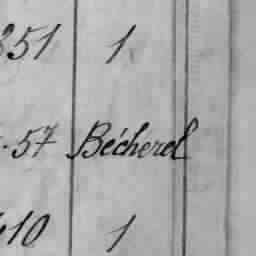 351 1
57 Bécherel
10 1